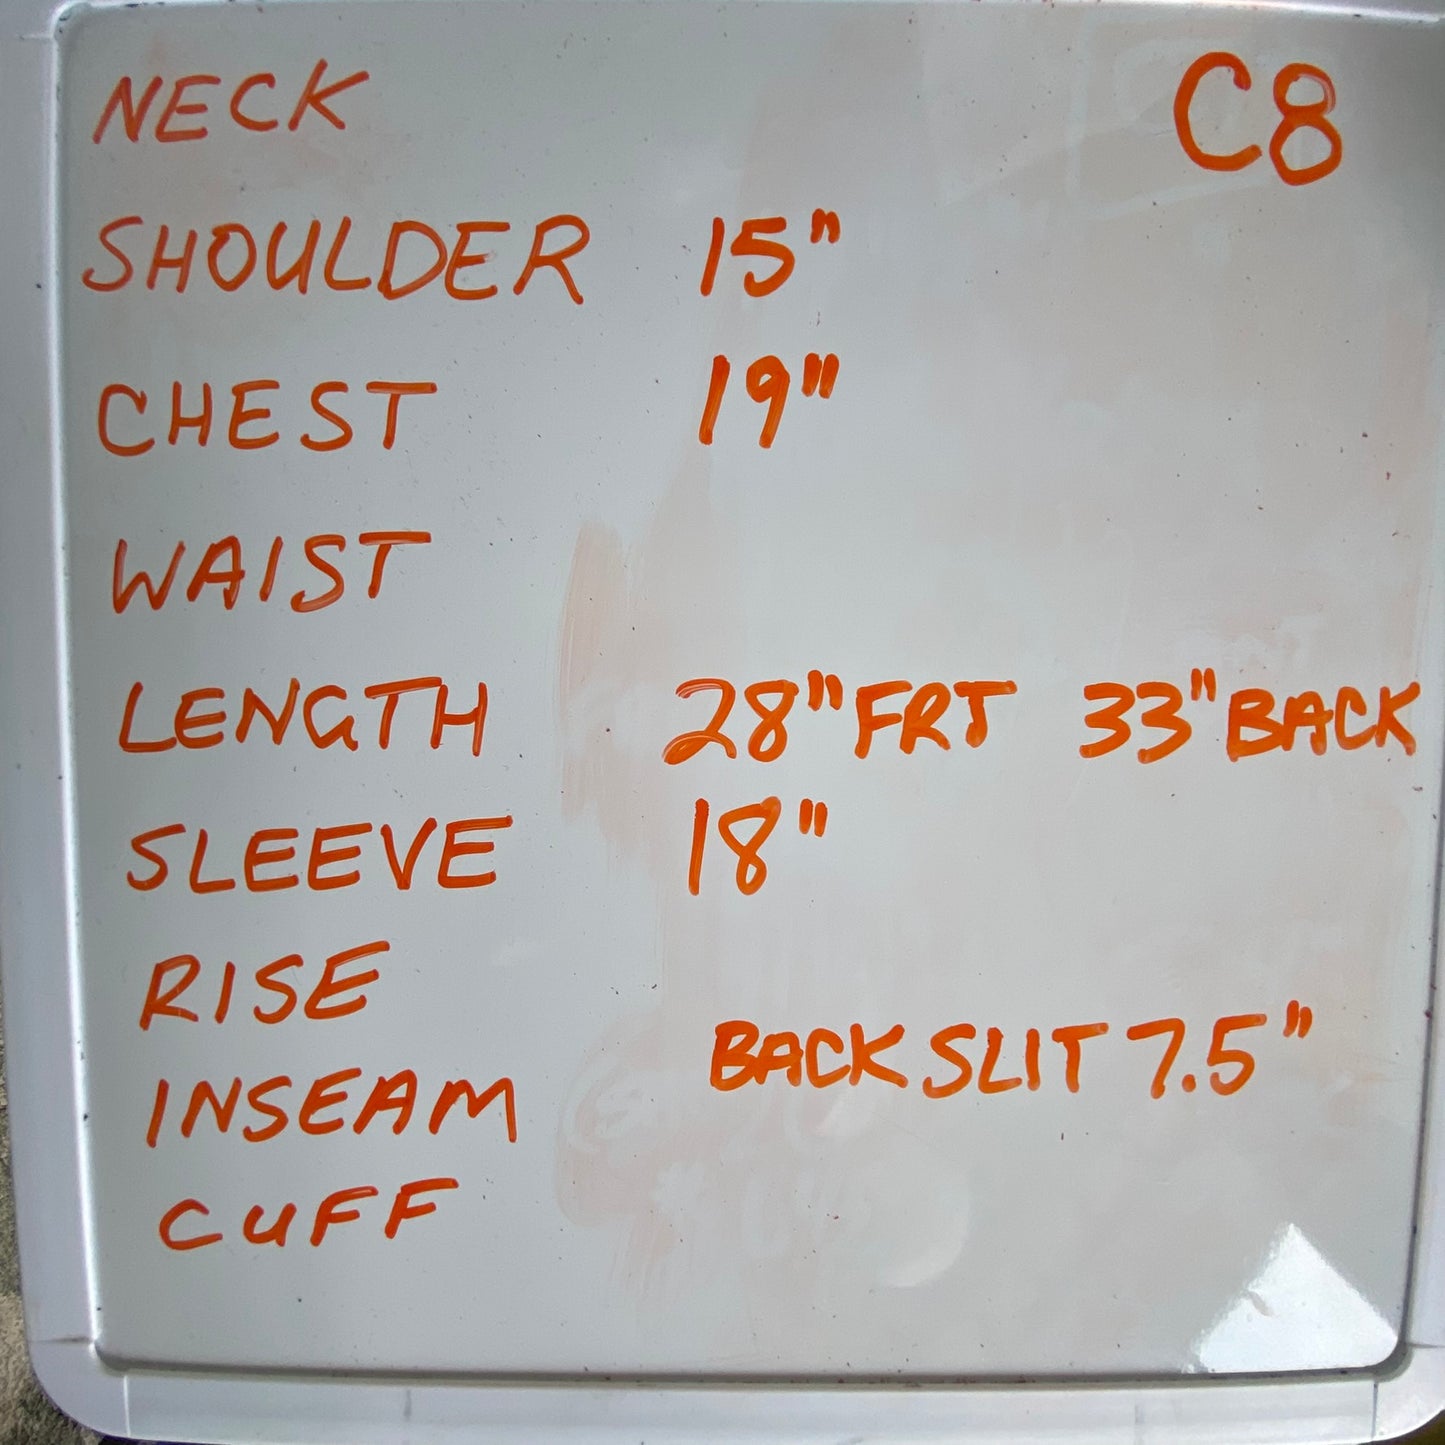 C8
NECK
SHOULDER 15"
CHEST 19"
WAIST
LENGTH 28" FRT 33" BACK
SLEEVE 18"
RISE
BACK SLIT 7.5"
INSEAM
CUFF